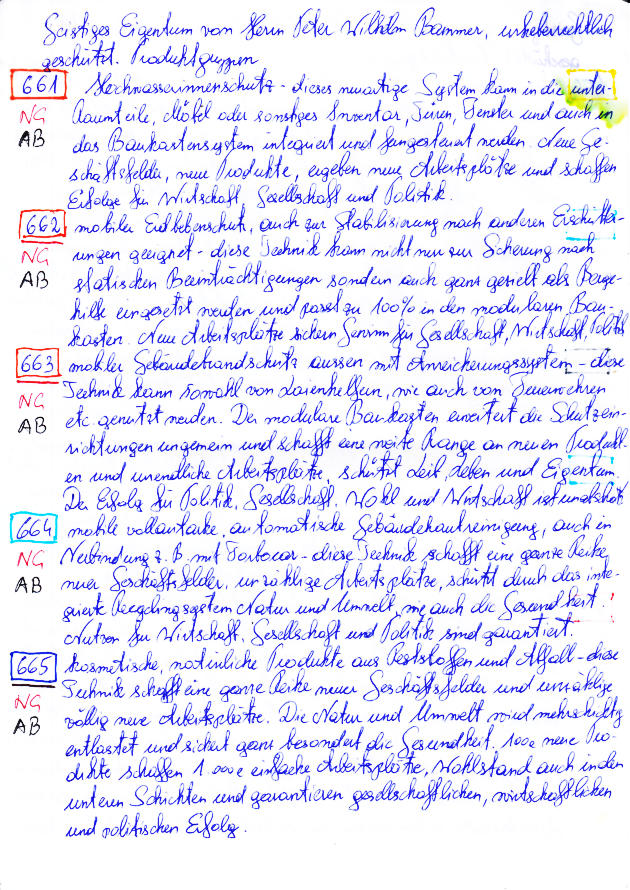 Geistiges Eigentum von Herrn Peter Wilhelm Bammer, urheberrechtlich
geschützt. Produktgruppen
661 Hochwasserinnenschutz - dieses neuartige System kann in die unter-
NG Raumteile, Möbel oder sonstiges Inventar, Türen, Fenster und auch in
AB das Baukastensystem integriert und ferngesteuert werden. Neue Ge-
schäftsfelder, neue Produkte, ergeben neue Arbeitsplätze und schaffen
Erfolge für Wirtschaft, Gesellschaft und Politik.
662 mobiler Erdbebenschutz, auch zur Stabilisierung nach anderen Erschütter-
NG ungen geeignet - diese Technik kann nicht nur zur Sicherung nach
AB statischen Beeinträchtigungen sondern auch ganz gezielt als Berge-
hilfe eingesetzt werden und passt zu 100% in den modularen Bau-
kasten. Neue Arbeitsplätze sichern Gewinn für Gesellschaft, Wirtschaft, Politik
663 mobiler Gebäudebrandschutz aussen mit Anreicherungssystem - diese
NG Technik kann sowohl von Laienhelfern, wie auch von Feuerwehren
AB etc. genutzt werden. Der modulare Baukasten erweitert die Schutzein-
richtungen ungemein und schafft eine weite Range an neuen Produkt-
en und unendliche Arbeitsplätze, schützt Leib, Leben und Eigentum.
Der Erfolg für Politik, Gesellschaft, Wohl und Wirtschaft ist
664 mobile vollautarke, automatische Gebäudehautreinigung, auch in
NG Verbindung z. B. mit Torbocar - diese Technik schafft eine ganze Reihe
AB neuer Geschäftsfelder, unzählige Arbeitsplätze, schützt durch das inte-
grierte Recyclingsystem Natur und Umwelt, wie auch die Gesundheit!
Nutzen für Wirtschaft, Gesellschaft und Politik sind garantiert.
665 kosmetische, natürliche Produkte aus Reststoffen und Abfall - diese
NG Technik schafft eine ganze Reihe neuer Geschäftsfelder und unzählige
AB völlig neue Arbeitsplätze. Die Natur und Umwelt wird mehrschichtig
entlastet und sichert ganz besonders die Gesundheit. 1000e neue Pro-
dukte schaffen 1.000e einfache Arbeitsplätze, Wohlstand auch in den
unteren Schichten und garantieren gesellschaftlichen, wirtschaftlichen
und politischen Erfolg.